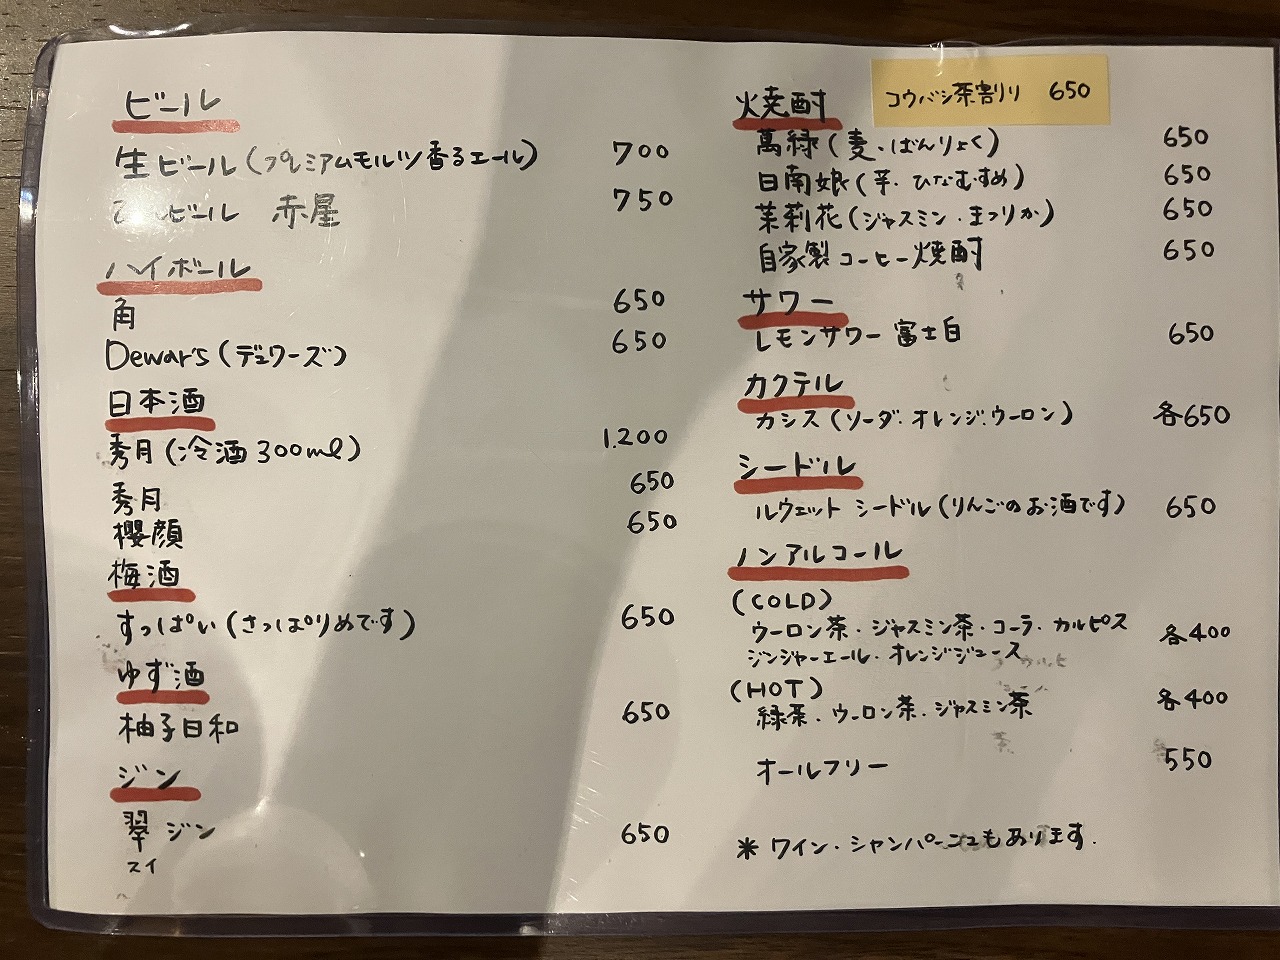 ビール
生ビール(プレミアムモルツ香るエール) 700
ビール 赤星 750
ハイボール
角 650
Dewar's(デュワーズ) 650
日本酒
秀月(冷酒300ml) 1.200
秀月 650
櫻顔 650
梅酒
すっぱい(さっぱりめです) 650
ゆず酒
柚子日和 650
ジン
翠ジン 650
スイ
焼酎
コウバシ茶割り 650
萬緑(麦・ばんりょく) 650
日南娘(芋・ひなむすめ) 650
茉莉花(ジャスミン・まつりか) 650
自家製コーヒー焼酎 650
サワー
レモンサワー 富士白 650
カクテル
カシス(ソーダ・オレンジ・ウーロン) 各650
シードル
ルウェット シードル(りんごのお酒です) 650
ノンアルコール
(COLD)
ウーロン茶・ジャスミン茶・コーラ・カルピス 各400
ジンジャーエール・オレンジジュース
(HOT)
緑茶・ウーロン茶・ジャスミン茶 各400
オールフリー 550
* ワイン・シャンパーニュもあります.